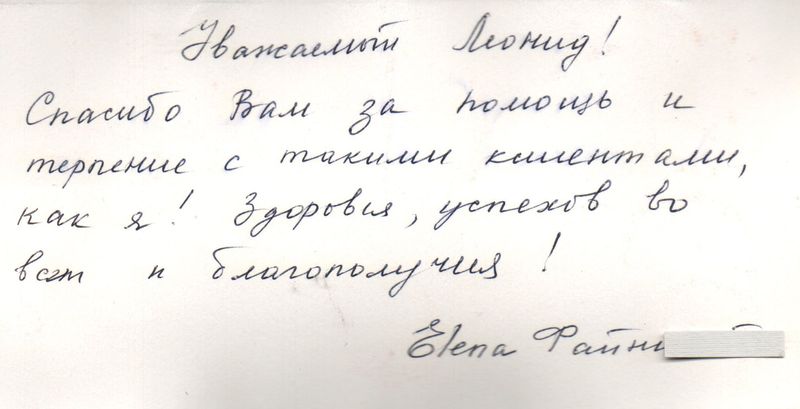 Уважаемый Леонид!
Спасибо Вам за помощь и
терпение с такими клиентами,
как я! Здоровья, успехов во
всём и благополучия!
Elena